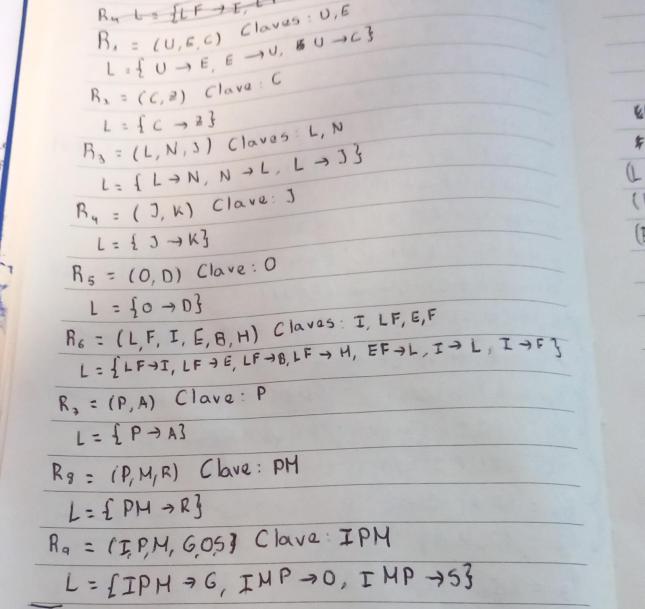 R₁ = (U, E, C) Claves: U, E
L = { U → E, E → U, U → C}
R₂ = (C, Z) Clave: C
L = { C → Z}
R₃ = (L, N, J) Claves: L, N
L = { L → N, N → L, L → J}
R₄ = ( J, K) Clave: J
L = { J → K}
R₅ = (O, D) Clave: O
L = {O → D}
R₆ = (L, F, I, E, B, H) Claves: I, LF, E,F
L = {LF→I, LF → E, LF→B, LF → H, EF→L, I→ L, I→F}
R₇ = (P, A) Clave: P
L = { P → A}
R₈ = (P, M, R) Clave: PM
L = { PM → R}
R₉ = (I, P, M, G, O, S} Clave: IPM
L = {IPM → G, IMP → O, IMP → S}